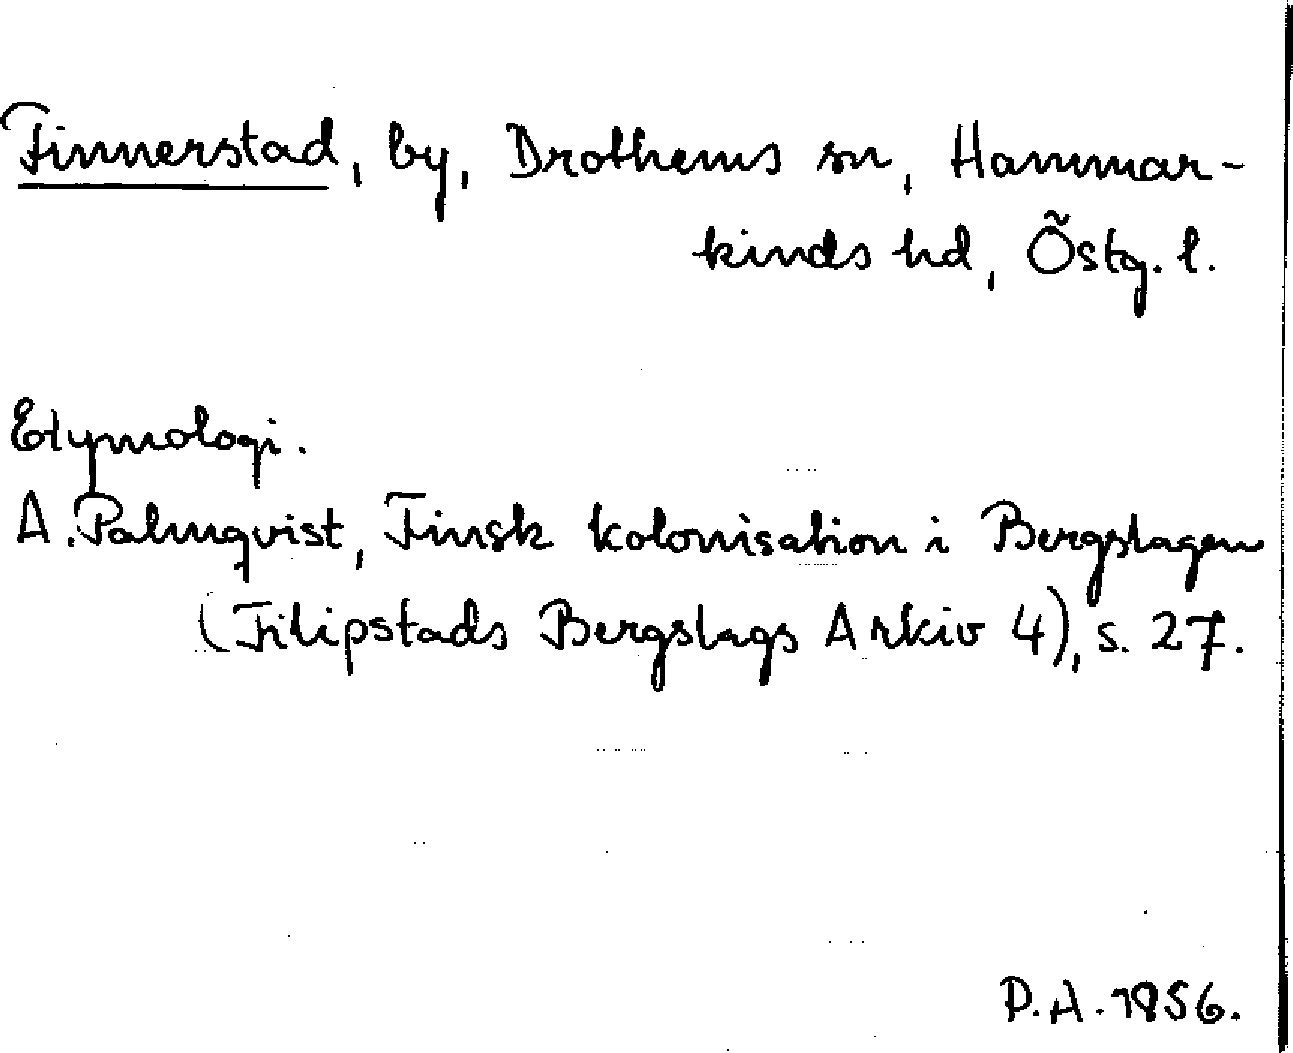 Finnerstad, by, Drothems sn, Hammar-
kinds hd, Östg. l.
Etymologi.
A. Palmqvist, Finsk kolonisation i Bergslagen
(Filipstads Bergslags Arkiv 4), s. 27.
P.A. 1956.